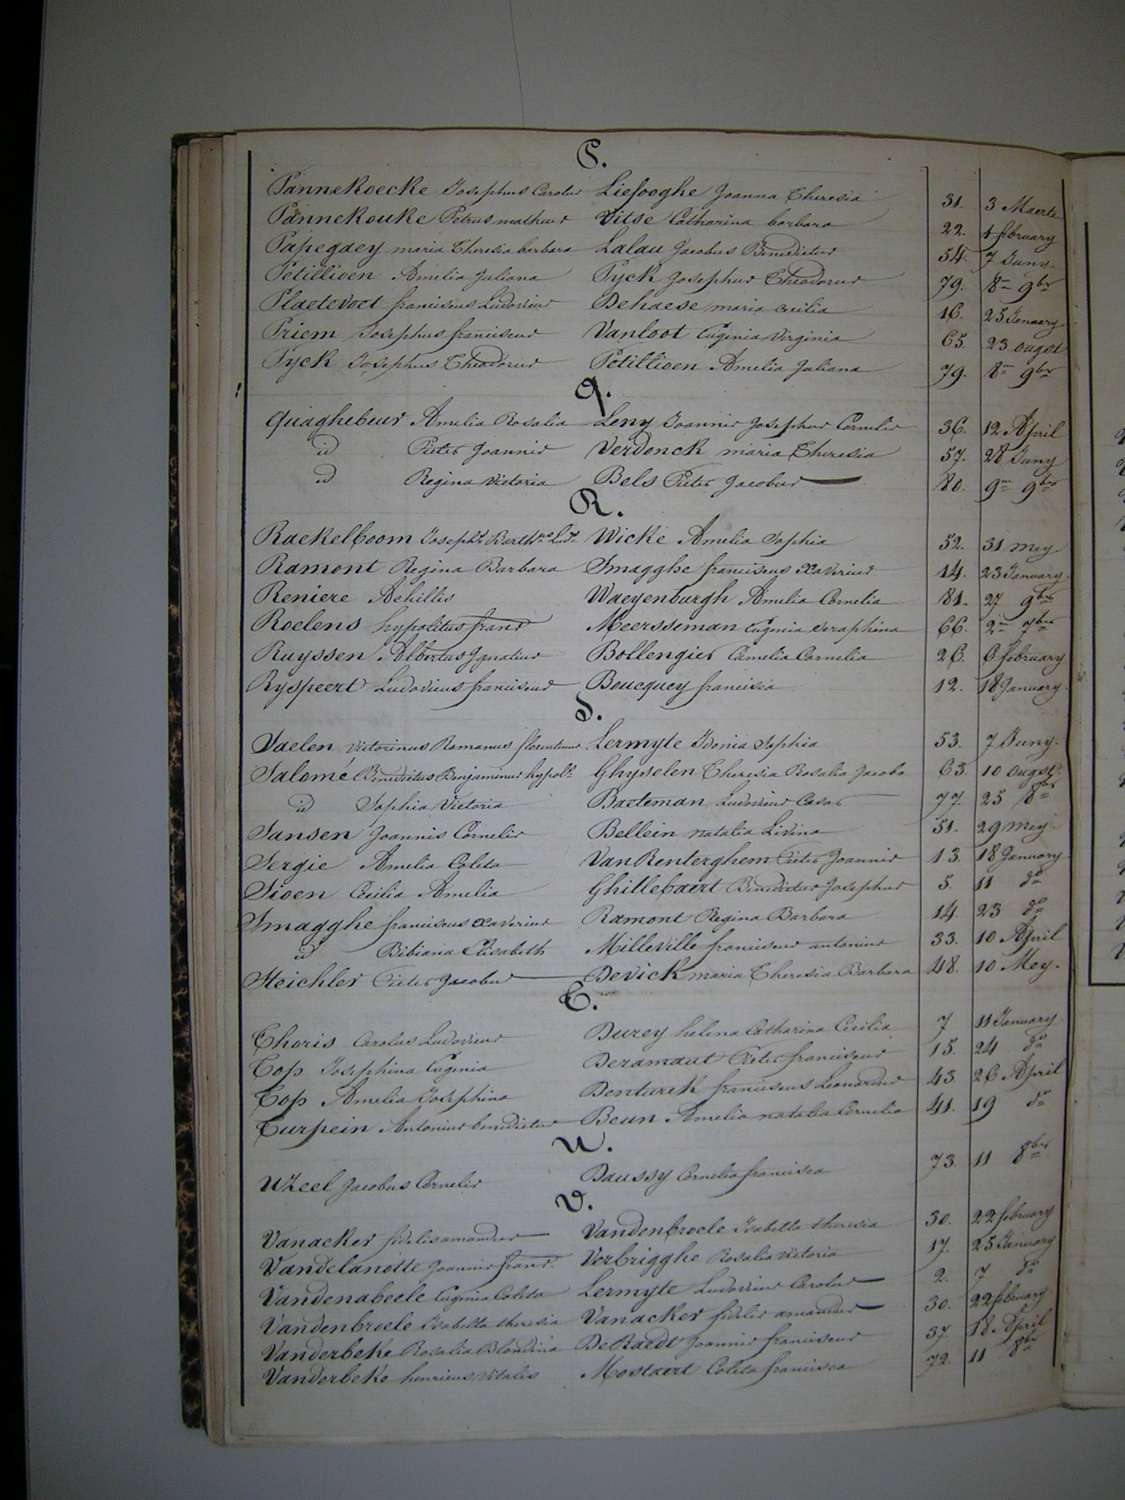 P.
Pannekoecke Josephus Carolus Liefooghe Joanna Theresia 31. 3 Maerte
Pannekouke Petrus matheus Vitse Catharina barbara 22. 1 february
Papegaey maria Theresia barbara Lalau Jacobus Benedictus 54. 7 Juny.
Petillioen Amelia Juliana Pyck Josephus Theodorus 79. 8m 9ber
Plaetevoet franciscus Ludovicus Dehaese maria cecilia 16. 25 January
Priem Josephus franciscus Vanloot Eugenia Virginia 65. 23 ougst
Pyck Josephus Theodorus Petillioen Amelia Juliana 79. 8m 9ber
Q.
Quaghebeur Amelia Rosalia Leny Joannis Josephus Cornelis 36. 12 April
id Pieter Joannis Verdonck maria Theresia 57. 28 Juny
id Regina Victoria Bels Pieter Jacobus 80. 9m 9bre
R.
Raekelboom Josephs Barthns Luds Wicke Amelia Sophia 52. 31 mey
Ramont Regina Barbara Smagghe franciscus Xaverius 14. 23 January.
Reniere Achillis Waeyenburgh Amelia Cornelia 81. 27 9bre
Roelens hypolitus francs Meersseman Eugenia Seraphina 66. 2m 7bre
Ruyssen Albertus Ignatius Bollengier Camelia Cornelia 26. 6 february
Ryspeert Ludovicus franciscus Boucquey francisca 12. 18 January.
S.
Saelen Victorinus Romanus florentinus Lermyte Idonia Sophia 53. 7 Juny.
Salomé Benedictus Benjaminus hypolte Ghyselen Theresia Rosalia Jacoba 63. 10 ougst
id Sophia Victoria Baeteman Ludovicus Cesar 77. 25 8bre
Sansen Joannis Cornelis Bellein natalia Livina 51. 29 mey.
Sergie Amelia Coleta VanRenterghem Pieter Joannis 13. 18 January
Sioen Cecilia Amelia Ghillebaert Benedictus Josephus 5. 11 do
Smagghe franciscus Xaverius Ramont Regina Barbara 14. 23 do
id Bibiana Elisabeth Milleville franciscus antonius 33. 10 April
Steichler Pieter Jacobus Devick maria Theresia Barbara 48. 10 Mey.
T.
Thoris Carolus Ludovicus Durey helena Catharina Cecilia 7 11 January
Top Josephina Eugenia Deramaut Pieter franciscus 15. 24 do
Top Amelia Josephina Denturck franciscus Leonardus 43. 26 April
Turpein Antonius benedictus Beun Amelia natalia Cornelia 41. 19 do
U.
Uzeel Jacobus Cornelis Daussy Cornelia francisca 73. 11 8bre
V.
Vanacker fidelis amandus Vandenbroele Isabella theresia 30. 22 february
Vandelanotte Joannis francs Verbrigghe Rosalia Victoria 17. 25 January
Vandenabeele Eugenia Coleta Lermyte Ludovicus Carolus 2. 7 do
Vandenbroele Isabella theresia Vanacker fidelis amandus 30. 22 february
Vanderbeke Rosalia Blondina DeRaedt Joannis franciscus 37. 18 April
Vanderbeke henricus Vitalis Mostaert Coleta francisca 72. 11 8bre